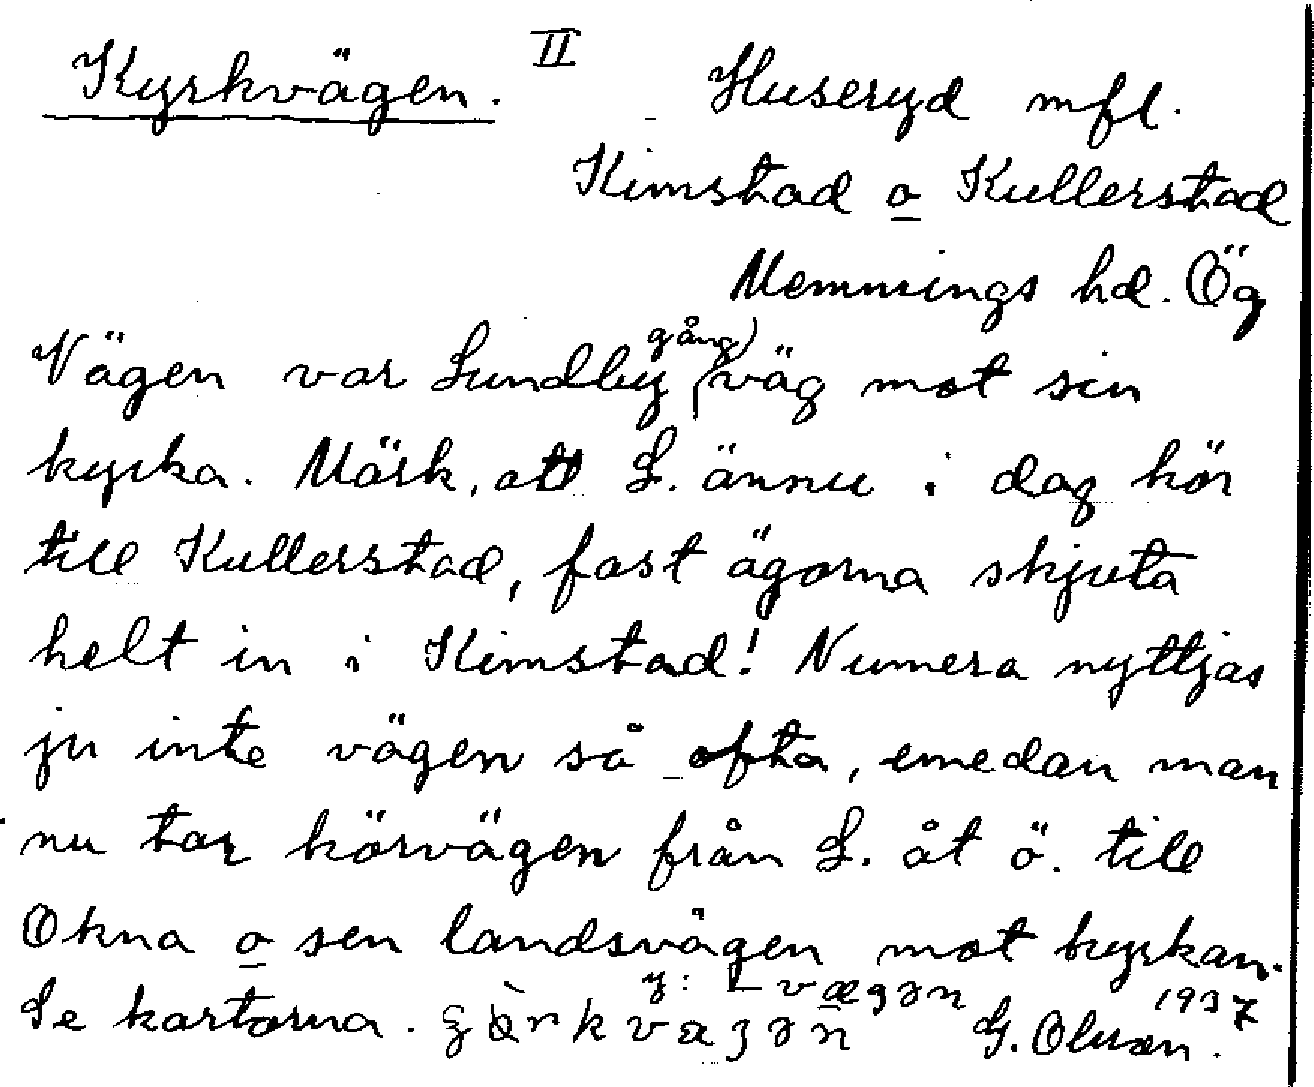 Kyrkvägen. II Huseryd mfl.
Kimstad o Kullerstad
Memmings hd. Ög
Vägen var Lundby (gång)väg mot sin
kyrka. Märk, att L. ännu i dag hör
till Kullerstad, fast ägorna skjuta
helt in i Kimstad! Numera nyttjas
ju inte vägen så ofta, emedan man
nu tar körvägen från L. åt ö. till
Okna o sen landsvägen mot kyrkan.
Se kartorna. G. Olsson. 1937